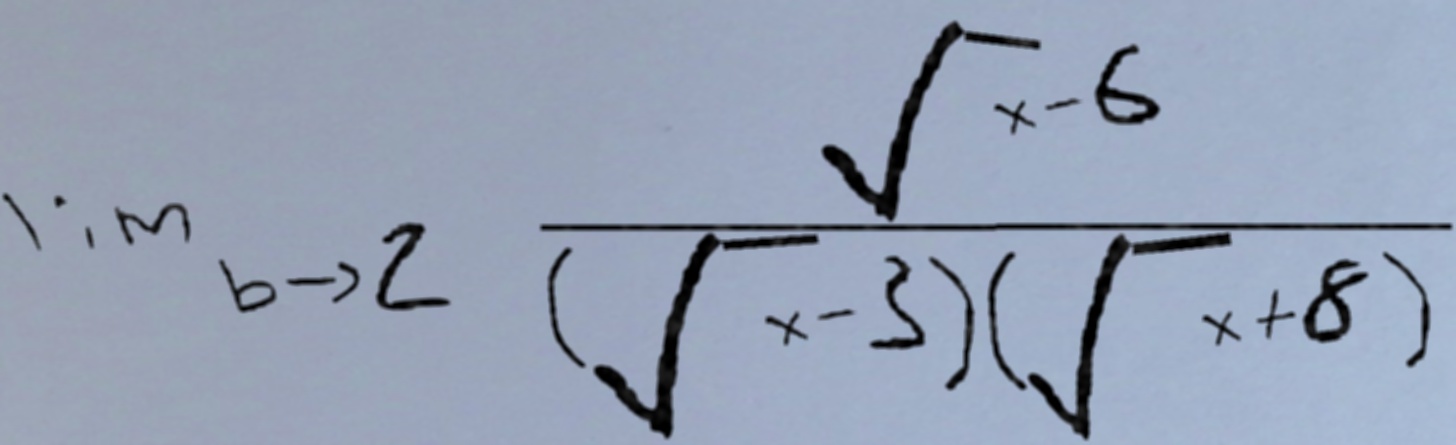 \lim_{b \to 2} \frac{\sqrt{x} - 6}{(\sqrt{x} - 3)(\sqrt{x} + 8)}